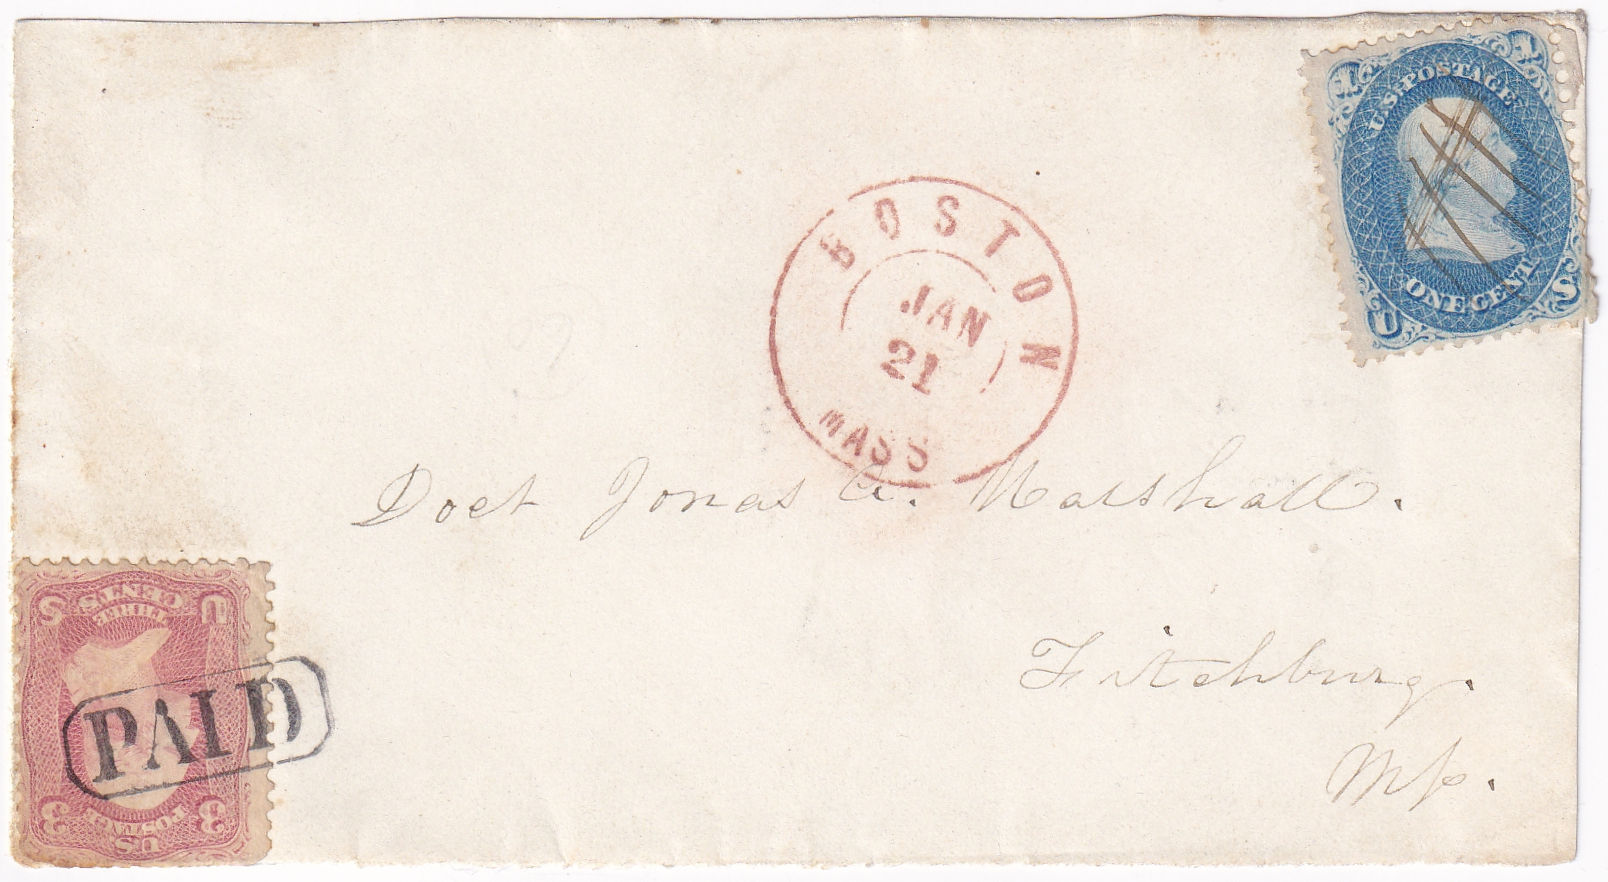 1 1
U.S. POSTAGE
ONE CENT
U S
BOSTON
JAN
21
MASS
Doct Jonas A. Marshall.
Fitchburg.
Ms.
U S
THREE
CENTS
PAID
3 3
US
POSTAGE